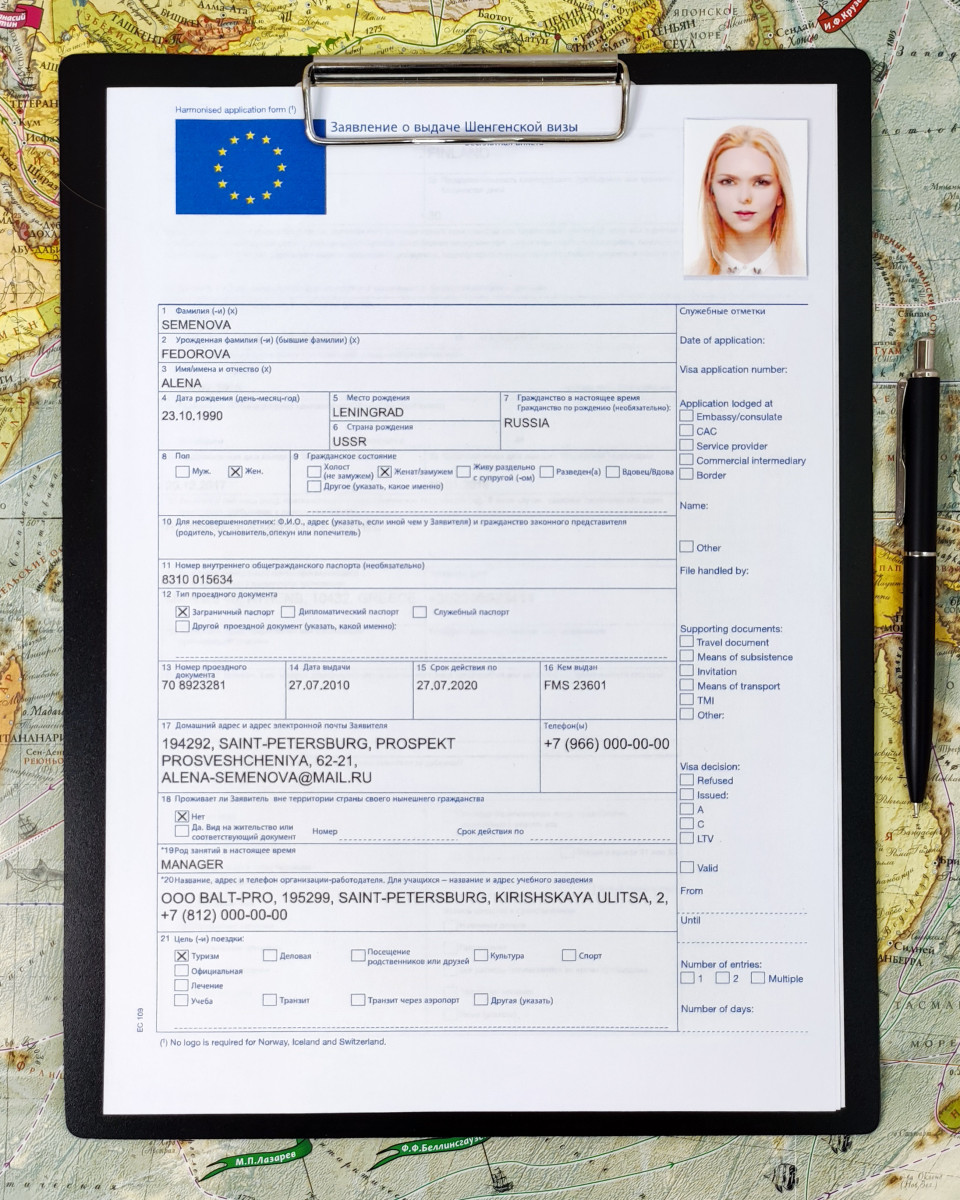 Harmonised application form (¹)
Заявление о выдаче Шенгенской визы
1 Фамилия (-и) (x)
SEMENOVA
2 Урожденная фамилия (-и) (бывшие фамилии) (x)
FEDOROVA
3 Имя/имена и отчество (x)
ALENA
4 Дата рождения (день-месяц-год)
23.10.1990
5 Место рождения
LENINGRAD
6 Страна рождения
USSR
7 Гражданство в настоящее время
Гражданство по рождению (необязательно):
RUSSIA
8 Пол
Муж. Жен.
9 Гражданское состояние
Холост
(не замужем)
Женат/замужем
Живу раздельно
с супругой (-ом)
Разведен(а)
Вдовец/Вдова
Другое (указать, какое именно)
10 Для несовершеннолетних: Ф.И.О., адрес (указать, если иной чем у Заявителя) и гражданство законного представителя
(родитель, усыновитель,опекун или попечитель)
11 Номер внутреннего общегражданского паспорта (необязательно)
8310 015634
12 Тип проездного документа
Заграничный паспорт Дипломатический паспорт Служебный паспорт
Другой проездной документ (указать, какой именно):
13 Номер проездного
документа
70 8923281
14 Дата выдачи
27.07.2010
15 Срок действия по
27.07.2020
16 Кем выдан
FMS 23601
17 Домашний адрес и адрес электронной почты Заявителя
194292, SAINT-PETERSBURG, PROSPEKT
PROSVESHCHENIYA, 62-21,
ALENA-SEMENOVA@MAIL.RU
Телефон(ы)
+7 (966) 000-00-00
18 Проживает ли Заявитель вне территории страны своего нынешнего гражданства
Нет
Да. Вид на жительство или
соответствующий документ
Номер
Срок действия по
*19Род занятий в настоящее время
MANAGER
*20Название, адрес и телефон организации-работодателя. Для учащихся – название и адрес учебного заведения
OOO BALT-PRO, 195299, SAINT-PETERSBURG, KIRISHSKAYA ULITSA, 2,
+7 (812) 000-00-00
21 Цель (-и) поездки:
Туризм Деловая
Посещение
родственников или друзей
Культура Спорт
Официальная
Лечение
Учеба Транзит Транзит через аэропорт Другая (указать)
EC 109
(¹) No logo is required for Norway, Iceland and Switzerland.
Служебные отметки
Date of application:
Visa application number:
Application lodged at
Embassy/consulate
CAC
Service provider
Commercial intermediary
Border
Name:
Other
File handled by:
Supporting documents:
Travel document
Means of subsistence
Invitation
Means of transport
TMI
Other:
Visa decision:
Refused
Issued:
A
C
LTV
Valid
From
Until
Number of entries:
1 2 Multiple
Number of days:
М.П.Лазарев
ЯПОНСКОЕ
МОРЕ
СЕУЛ
1275
1805
ГУАМ